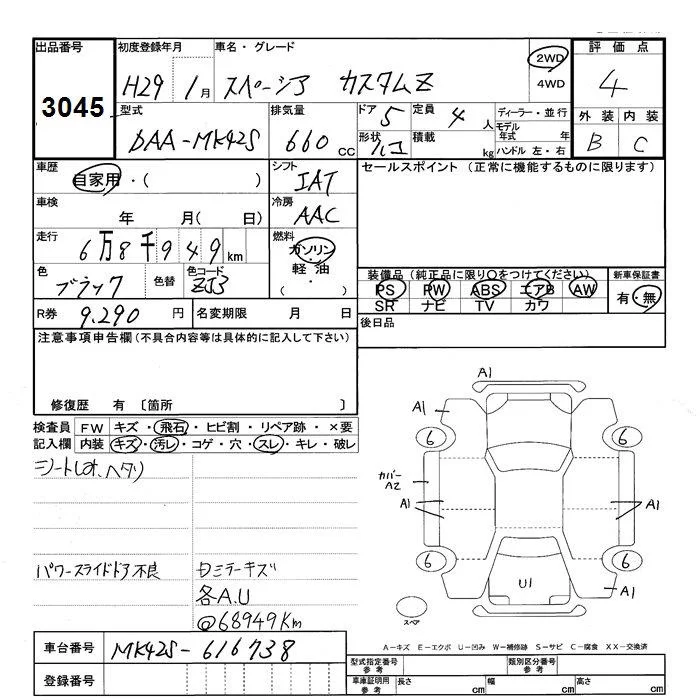 出品番号
3045
初度登録年月
H29 1月
車名・グレード
スペーシア カスタムZ
2WD
4WD
評価点
4
外装 内装
B C
型式
DAA-MK42S
排気量
660 CC
ドア 5
形状 ハコ
定員 4人
積載 kg
ディーラー・並行
モデル年式 年
ハンドル 左・右
車歴
自家用・( )
シフト
IAT
セールスポイント (正常に機能するものに限ります)
車検
年 月( 日)
冷房
AAC
走行
6万8千949km
燃料
ガソリン・
軽油
( ・ )
色
ブラック
色替
色コード
ZJ3
装備品(純正品に限り○をつけてください)
PS PW ABS エアB AW
SR ナビ TV カワ
新車保証書
有・無
R券 9,290 円
名変期限 月 日
後日品
注意事項申告欄(不具合内容等は具体的に記入して下さい)
修復歴 有 〔箇所 〕
検査員
記入欄
FW キズ・飛石・ヒビ割・リペア跡・×要
内装 キズ・汚レ・コゲ・穴・スレ・キレ・破レ
シート ヘタリ
パワースライドドア不良
ミラーキズ
各A.U
@68949Km
A1
A1
6 6
カバー
A2
A1 A1
6 6
U1
A1
スペア
A-キズ E-エクボ U-凹み W-補修跡 S-サビ C-腐食 XX-交換済
車台番号
MK42S-616738
登録番号
型式指定番号
参考
類別区分番号
参考
車庫証明用
参考
長さ cm
幅 cm
高さ cm